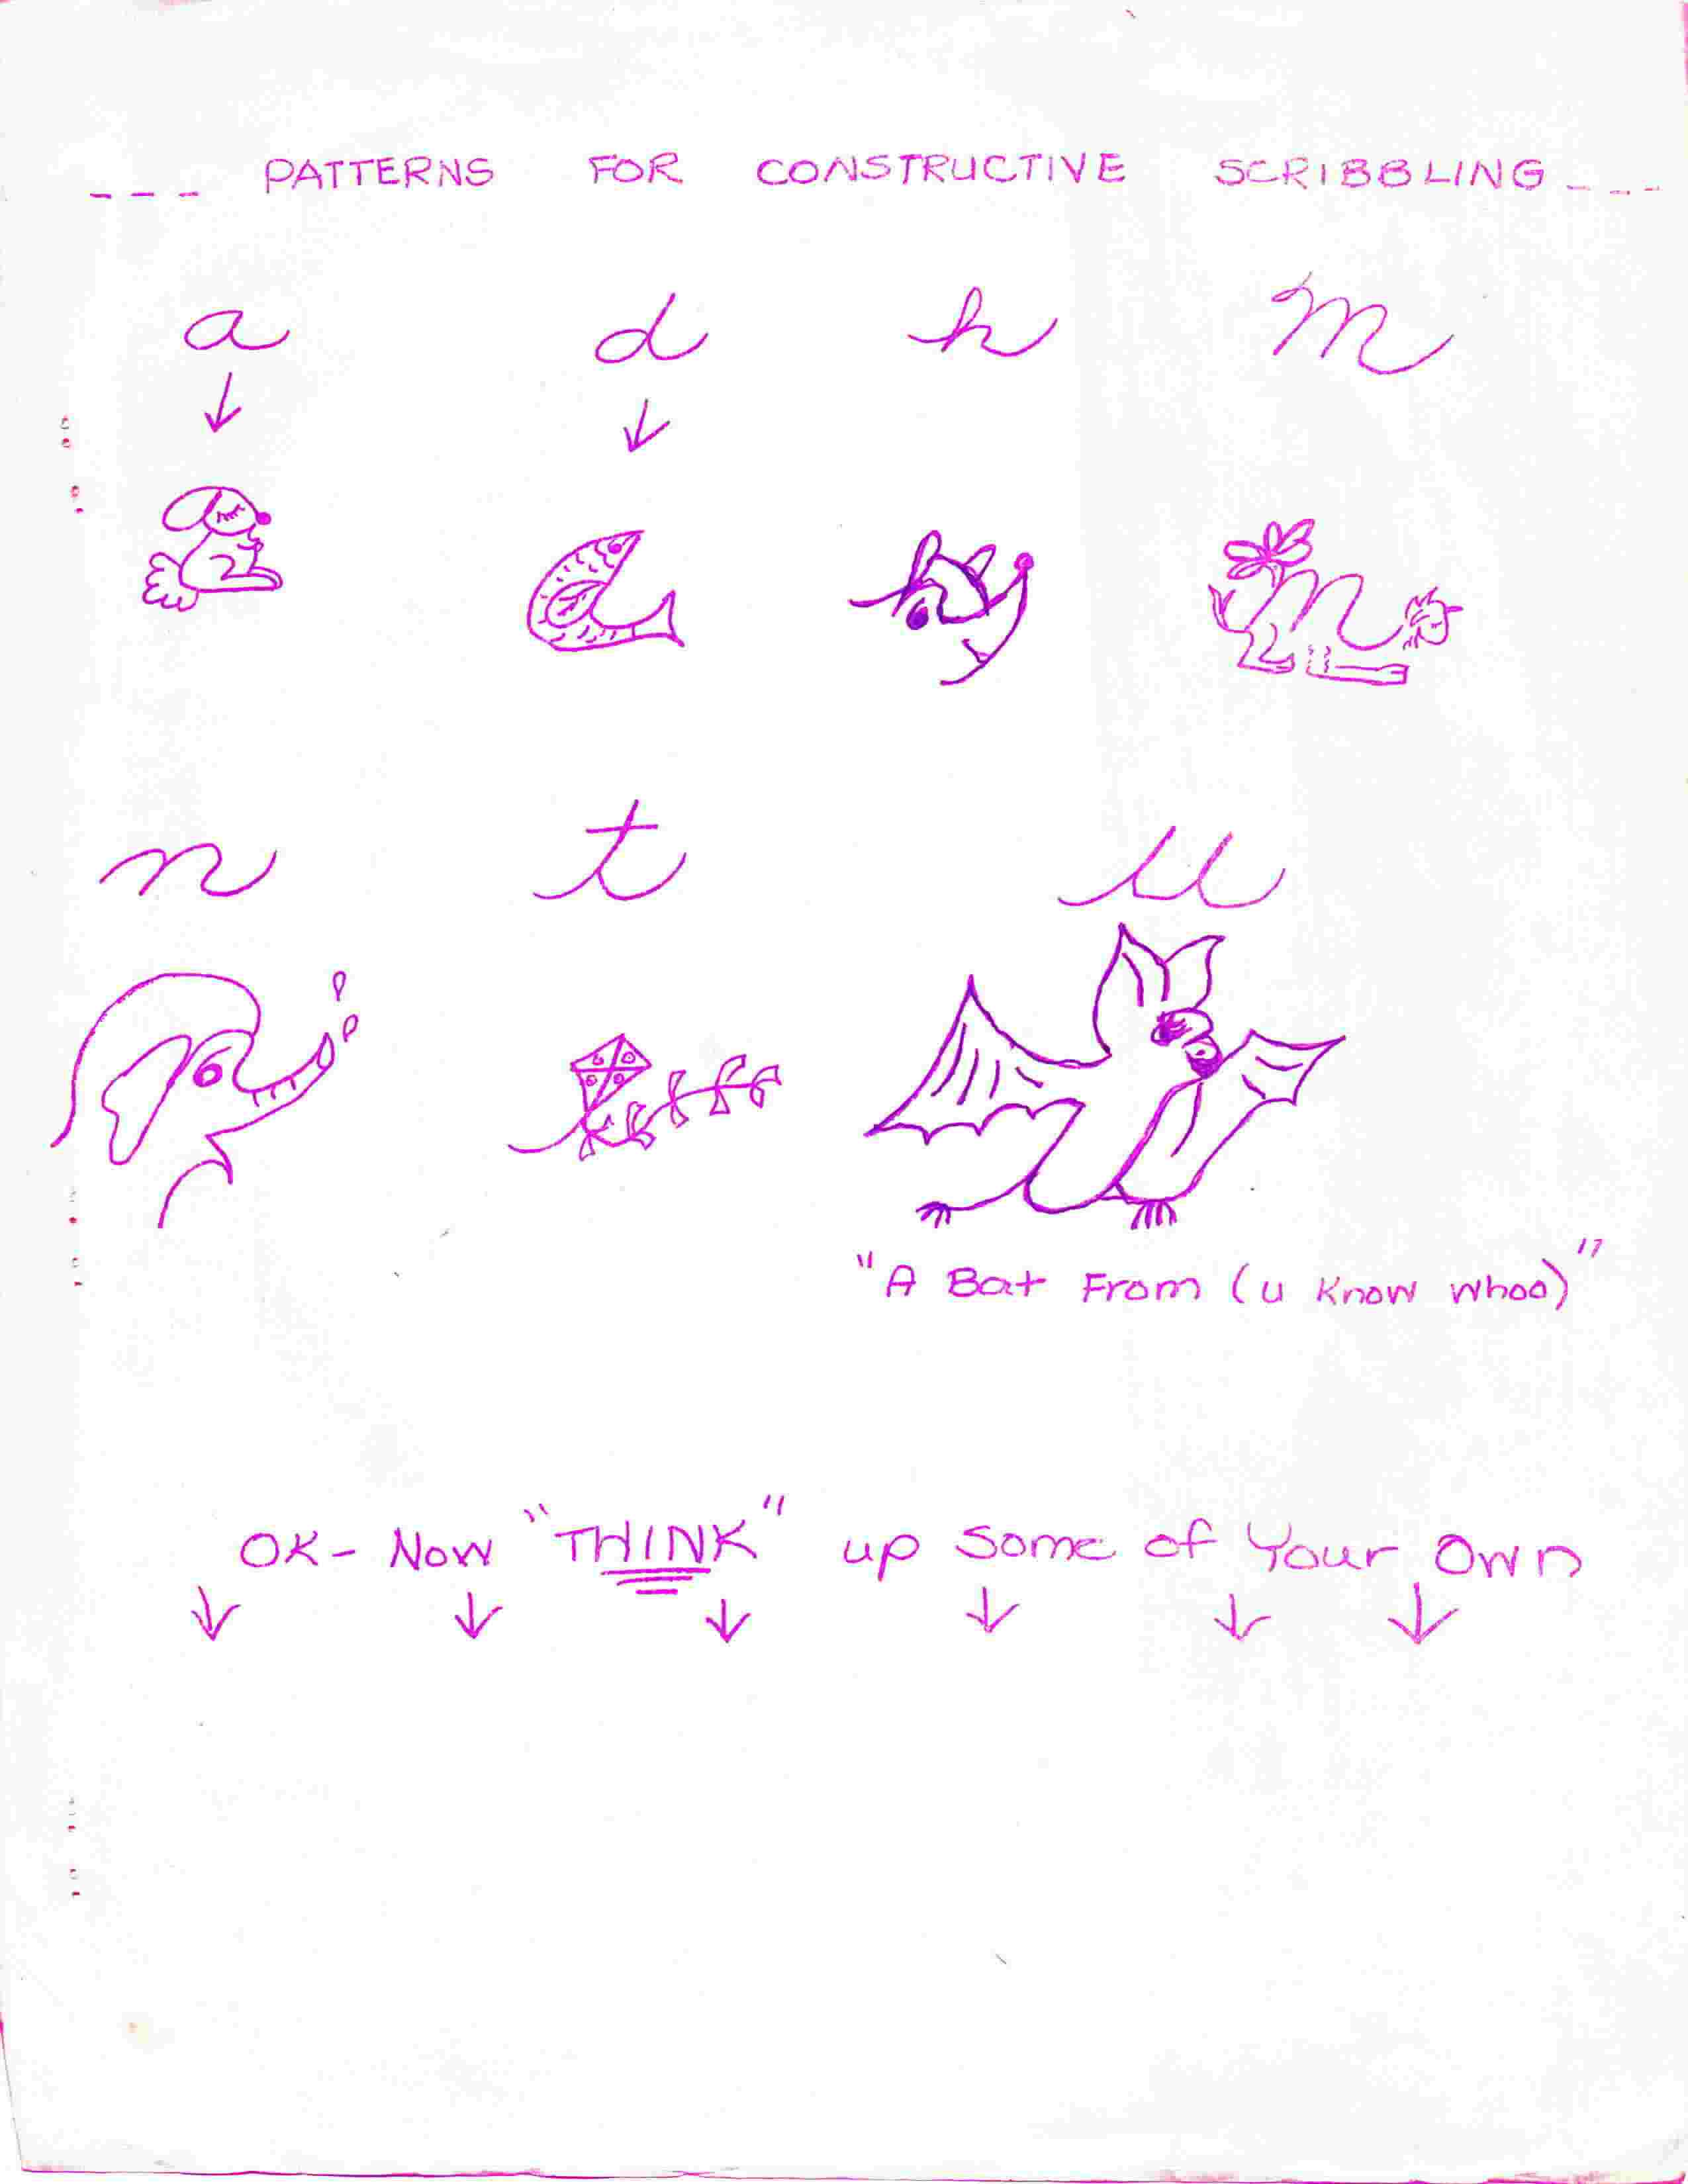 --- PATTERNS FOR CONSTRUCTIVE SCRIBBLING ---
a d h m
n t u
"A Bat From (u Know Whoo)"
OK- Now "THINK" up Some of Your Own